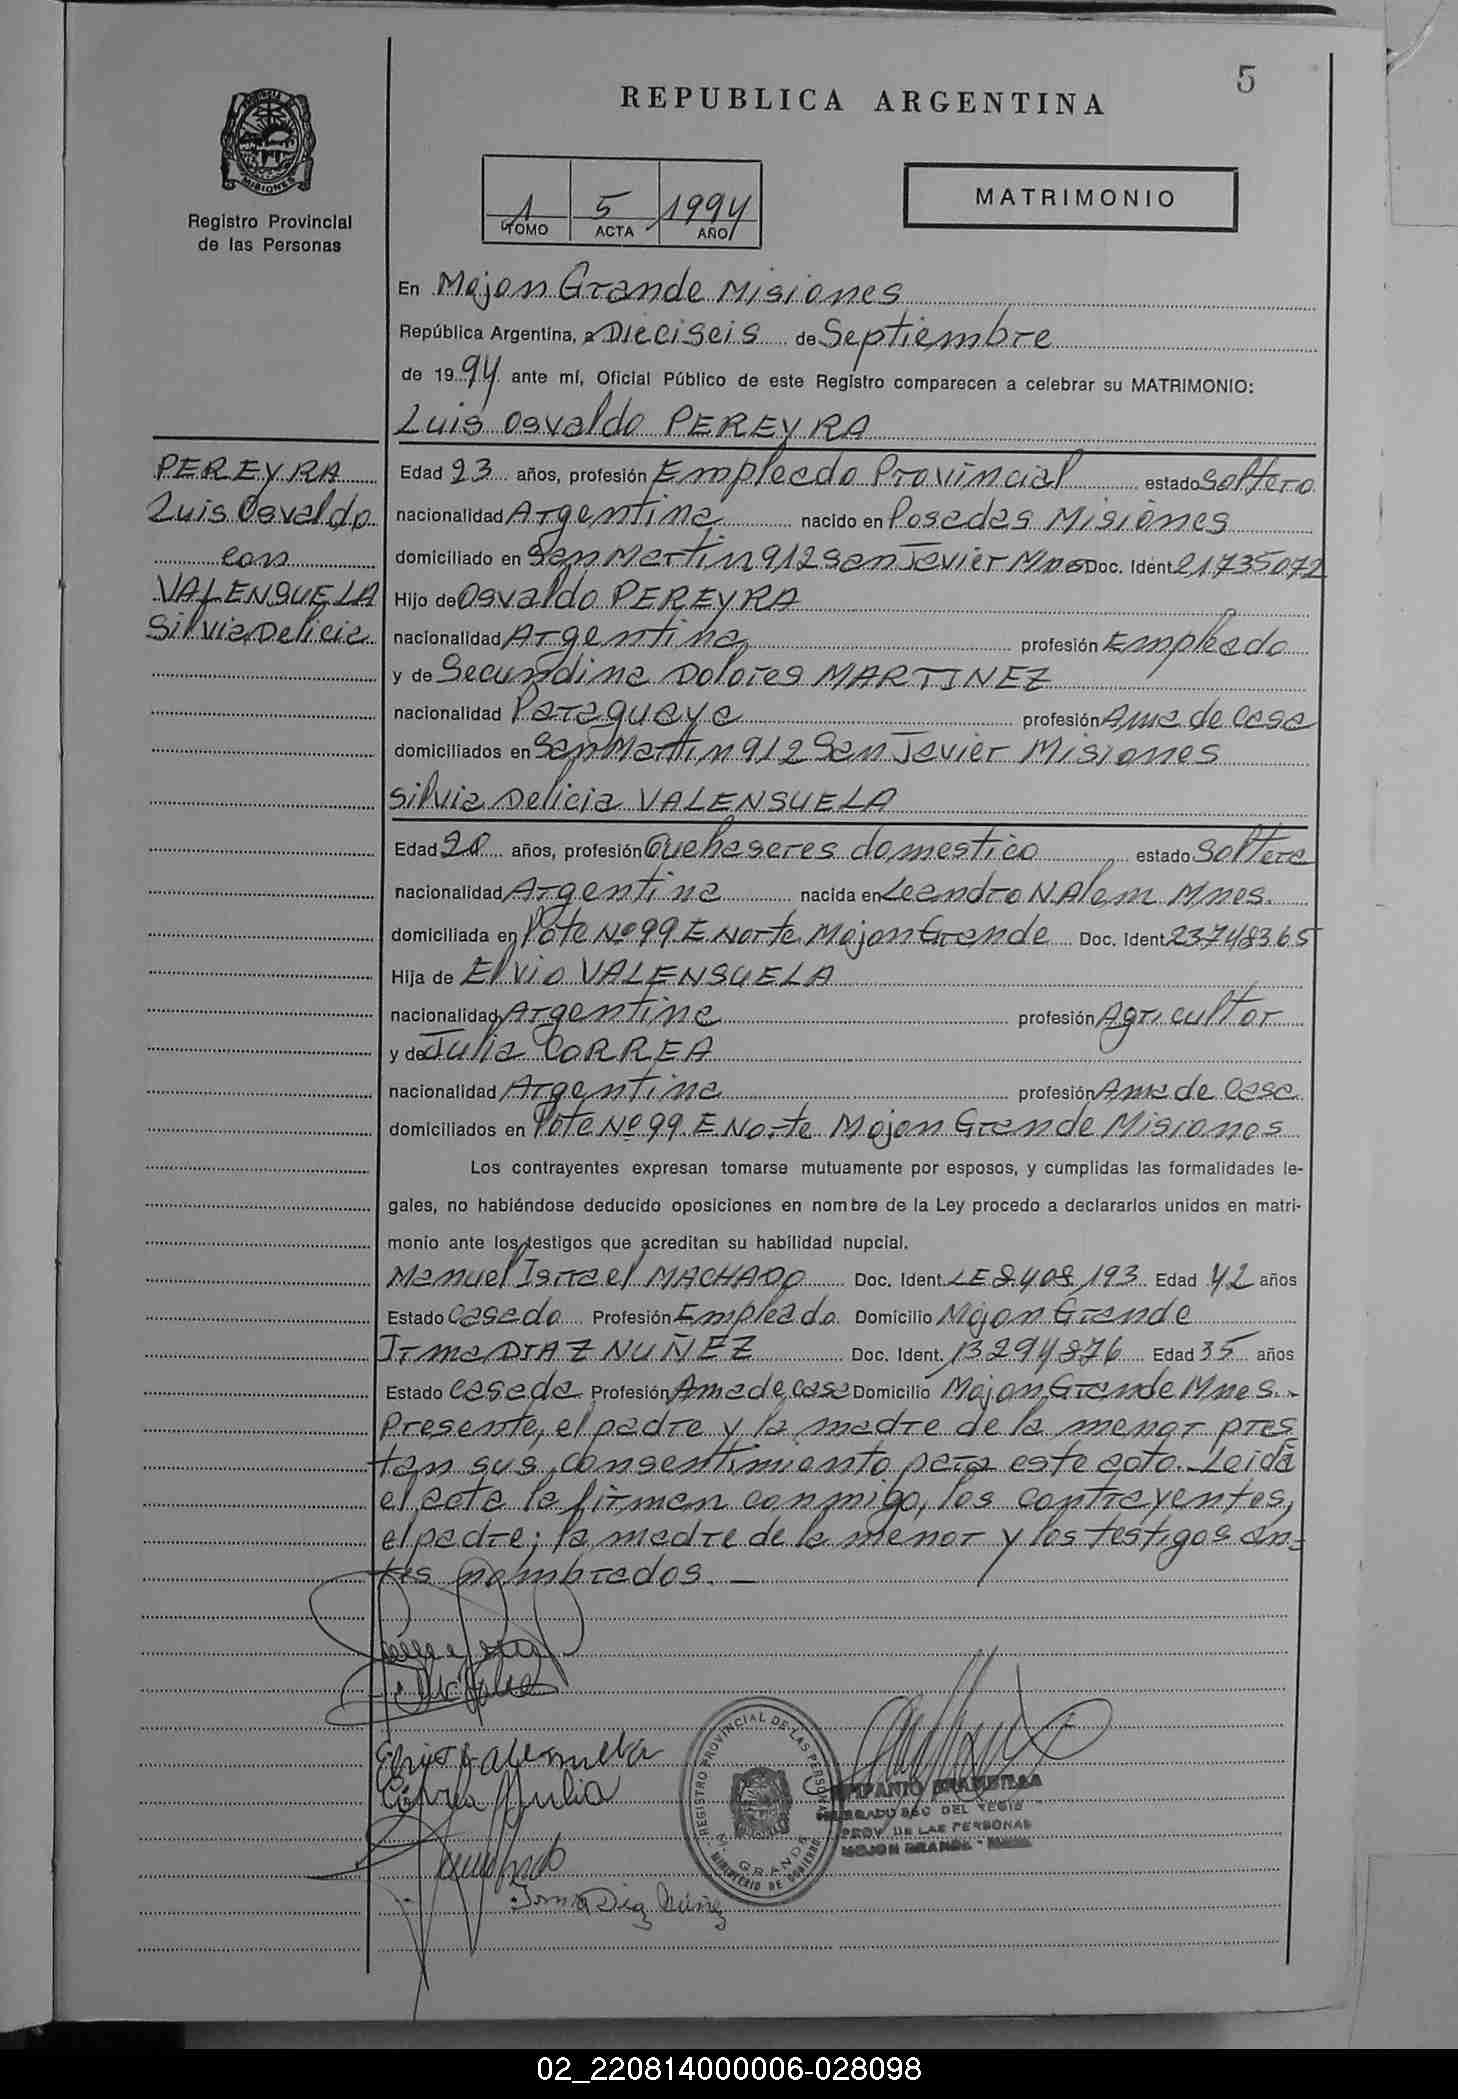 5
REPUBLICA ARGENTINA
MISIONES
Registro Provincial
de las Personas
1 5 1994
TOMO ACTA AÑO
MATRIMONIO
En Mojon Grande Misiones
República Argentina, a Dieciseis de Septiembre
de 1994 ante mí, Oficial Público de este Registro comparecen a celebrar su MATRIMONIO:
Luis Osvaldo PEREYRA
PEREYRA
Luis Osvaldo
con
VALENSUELA
Silvia Delicia
Edad 23 años, profesión Empleado Provincial estado Soltero
nacionalidad Argentina nacido en Posadas Misiones
domiciliado en San Martin 912 San Javier Mnes Doc. Ident. 21735072
Hijo de Osvaldo PEREYRA
nacionalidad Argentina profesión Empleado
y de Secundina Dolores MARTINEZ
nacionalidad Paraguaya profesión Ama de Casa
domiciliados en San Martin 912 San Javier Misiones
Silvia Delicia VALENSUELA
Edad 20 años, profesión Quehaseres domestico estado Soltera
nacionalidad Argentina nacida en Leandro N Alem Mnes.
domiciliada en Lote Nº 99 E Norte Mojon Grande Doc. Ident. 23748365
Hija de Elvio VALENSUELA
nacionalidad Argentina profesión Agricultor
y de Julia CORREA
nacionalidad Argentina profesión Ama de Casa
domiciliados en Lote Nº 99 E Norte Mojon Grande Misiones
Los contrayentes expresan tomarse mutuamente por esposos, y cumplidas las formalidades le-
gales, no habiéndose deducido oposiciones en nombre de la Ley procedo a declararlos unidos en matri-
monio ante los testigos que acreditan su habilidad nupcial.
Manuel Isrrael MACHADO Doc. Ident. LE 8.408.193 Edad 42 años
Estado Casado Profesión Empleado Domicilio Mojon Grande
Irma DIAZ NUÑEZ Doc. Ident. 13294876 Edad 35 años
Estado Casada Profesión Ama de Casa Domicilio Mojon Grande Mnes.-
Presente, el padre y la madre de la menor pres
tan sus consentimiento para este acto.- Leida
el acta la firman conmigo, los contrayentes,
el padre; la madre de la menor y los testigos an=
tes nombrados.-
Elvio Valensuela
Correa Julia
Irma Diaz Nuñez
REGISTRO PROVINCIAL DE LAS PERSONAS
GRANDE
MINISTERIO DE GOBIERNO
DEL REGIS
PROV. DE LAS PERSONAS
MOJON GRANDE - Mnes.
02_220814000006-028098